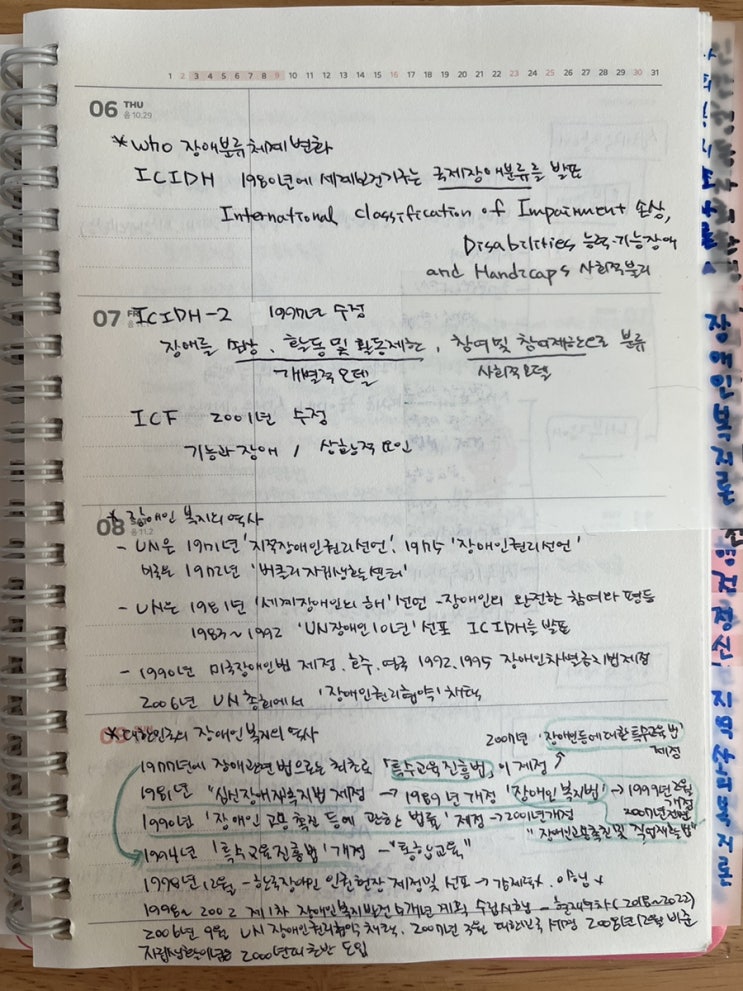 1 2 3 4 5 6 7 8 9 10 11 12 13 14 15 16 17 18 19 20 21 22 23 24 25 26 27 28 29 30 31
06 THU
음10.29
* WHO 장애분류체계변화
ICIDH 1980년에 세계보건기구는 국제장애분류를 발표
International Classification of Impairment 손상,
Disabilities 능력·기능장애
and Handicaps 사회적불리
07 ICIDH-2 1997년 수정
장애를 손상, 활동 및 활동제한, 참여 및 참여제한으로 분류
개별적모델 사회적모델
ICF 2001년 수정
기능과 장애 / 상황적 요인
08 * 장애인 복지의 역사
음11.2
- UN은 1971년 '지적장애인권리선언', 1975 '장애인권리선언'
미국은 1972년 '버클리자립생활센터'
- UN은 1981년 '세계장애인의 해' 선언 - 장애인의 완전한 참여와 평등
1983~1992 'UN장애인10년' 선포 ICIDH를 발표
- 1990년 미국장애인법 제정. 호주, 영국 1992, 1995 장애인차별금지법제정
2006년 UN 총회에서 '장애인권리협약' 채택
09 * 대한민국의 장애인복지의 역사
2007년 '장애인등에 대한 특수교육법' 제정
1977년에 장애관련법으로는 최초로 「특수교육진흥법」이 제정
1981년 "심신장애자복지법 제정 → 1989년 개정 '장애인복지법' → 1999년 2월 개정
2007년 전면
1990년 '장애인 고용촉진 등에 관한 법률' 제정 → 2000년개정 "장애인고용촉진 및 직업재활법"
1994년 '특수교육진흥법' 개정 - "통합교육"
1998년 12월 - 한국장애인 인권헌장 제정및 선포 →
1998~2002 제1차 장애인복지발전5개년 계획 수립시행 - 현재5차(2018~2022)
2006년 9월 UN 장애인권리협약 채택, 2007년 3월 대한민국 서명 2008년12월 비준
자립생활이념은 2000년대 초반 도입
장애인복지론
정신
지역사회복지론